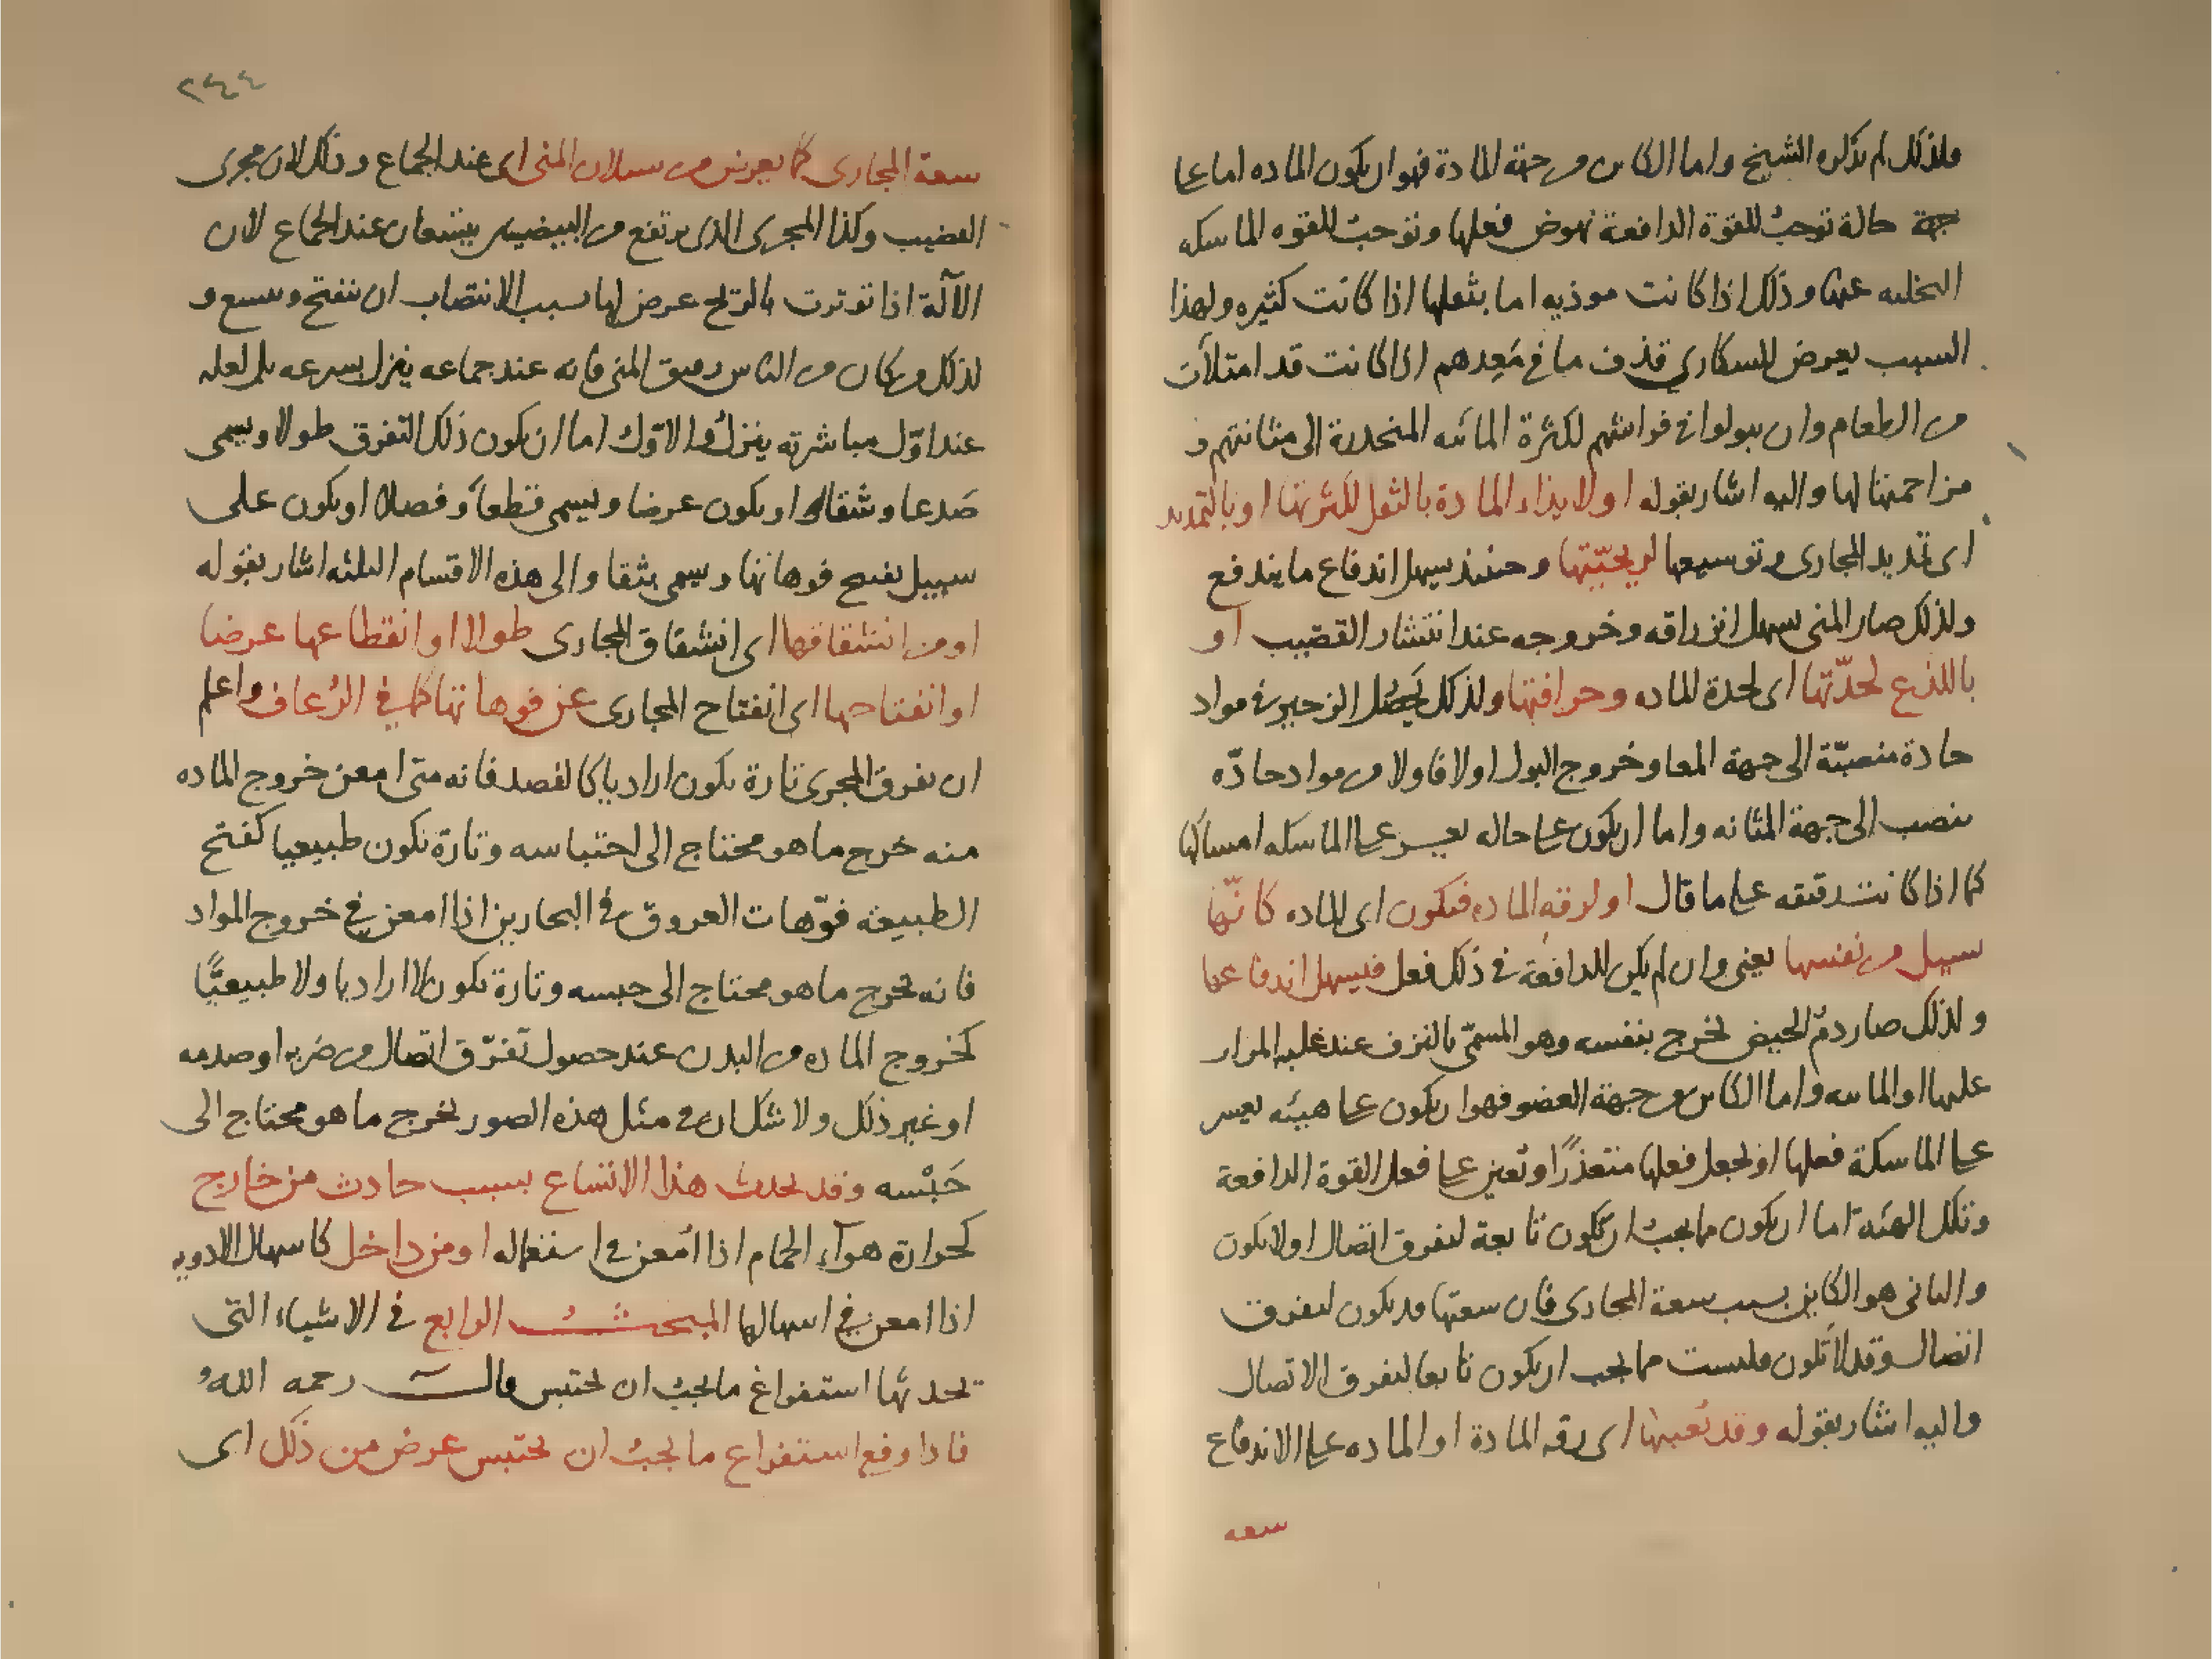 ولذلك لم يذكره الشيخ واما الكاين من جهة المادة فهو ان يكون الماده اما على
جهة حالة توجبُ للقوة الدافعة نهوض فعلها وتوجبُ للقوه الماسكه
التخليه عنها وذلك اذا كانت موذيه اما بثقلها اذا كانت كثيره ولهذا
السبب يعرض للسكارى قذف ما فى مَعِدهم اذا كانت قد امتلأت
من الطعام وان يبولوا فى فراشهم لكثرة المائيه المنحدرة الى مثانتهم و
مزاحمتها لها واليه اشار بقوله او لايذاء المادة بالثقل لكثرتها او بالتمديد
اى تمديد المجارى وتوسيعها لريحيّتها وحينئذ يسهل اندفاع ما يندفع
ولذلك صار المنى يسهل انزراقه وخروجه عند انتشار القضيب او
باللذع لحدّتها اى لحدة الماده وحرافتها ولذلك يحصُل الزحير فى مواد
حادة منصبّة الى جهة المعا وخروج البول اولا فاولا من مواد حادّه
ينصب الى جهة المثانه واما ان يكون على حاله يعسر على الماسكه امساكها
كما اذا كانت رقيقه على ما قال او لرقه الماده فيكون اى الماده كانّها
تسيل من نفسها يعنى وان لم يكن للدافعة فى ذلك فعل فيسهل اندفاعها
ولذلك صار دم الحيض يخرج بنفسه وهو المسمّى بالنزف عند غلبه المرار
عليها او المائيه واما الكاين من جهة العضو فهو ان يكون على هيئه يعسر
على الماسكة فعلها او يجعل فعلها متعذرًا وتعين على فعل القوة الدافعة
وتلك الهيئة اما ان يكون مما يجبُ ان يكون تابعة لتفرق اتصال او لا يكون
والثانى هو الكاين بسبب سعة المجارى فان سعتها قد يكون لتفرق
اتصال وقد لا تكون فليست مما يجب ان يكون تابعا لتفرق الاتصال
واليه اشار بقوله وقد تُعينها اى رقه المادة او الماده على الاندفاع
سعه
٢٤٤
سعة المجارى كما يعرض من سيلان المنى اى عند الجماع وذلك لان مجرى
القضيب وكذا المجرى الذى يرتفع من البيضتين يتسعان عند الجماع لان
الآلة اذا توترت بالريح عرض لها بسبب الانتصاب ان تنفتح وتتسع و
لذلك من كان من الناس رقيق المنى فانه عند جماعه ينزل بسرعه بل لعله
عند اوّل مباشرته ينزلُ والاوّل اما ان يكون ذلك التفرق طولا ويسمى
صَدعا وشقا او يكون عرضا ويسمى قطعاً وفصلا او يكون على
سبيل تفتح فوهاتها ويسمى بثقا والى هذه الاقسام الثلثه اشار بقوله
او من انشقاقها اى انشقاق المجارى طولا او انقطاعها عرضا
او انفتاحها اى انفتاح المجارى عن فوهاتها كما فى الرُعاف واعلم
ان تفرق المجرى تارة يكون اراديا كالفصد فانه متى امعن خروج الماده
منه خرج ما هو محتاج الى احتباسه وتارة يكون طبيعيا كفتح
الطبيعه فوّهات العروق فى البحارين اذا امعن فى خروج المواد
فانه يخرج ما هو محتاج الى حبسه وتارة يكون لا اراديا ولا طبيعيًّا
كخروج الماده من البدن عند حصول تفرّق اتصال من ضربه او صدمه
او غير ذلك ولا شك ان فى مثل هذه الصور يخرج ما هو محتاج الى
حَبْسه وقد يحدث هذا الاتساع بسبب حادث من خارج
كحرارة هوآء الحمام اذا امعن فى استعماله او من داخل كاسهال الادويه
اذا امعن فى اسهالها المبحثُ الرابع فى الاشياء التى
يحدثها استفراغ ما يجبُ ان يحتبس قال رحمه اللهُ
فاذا وقع استفراغ ما يجبُ ان يحتبس عرض من ذلك اى